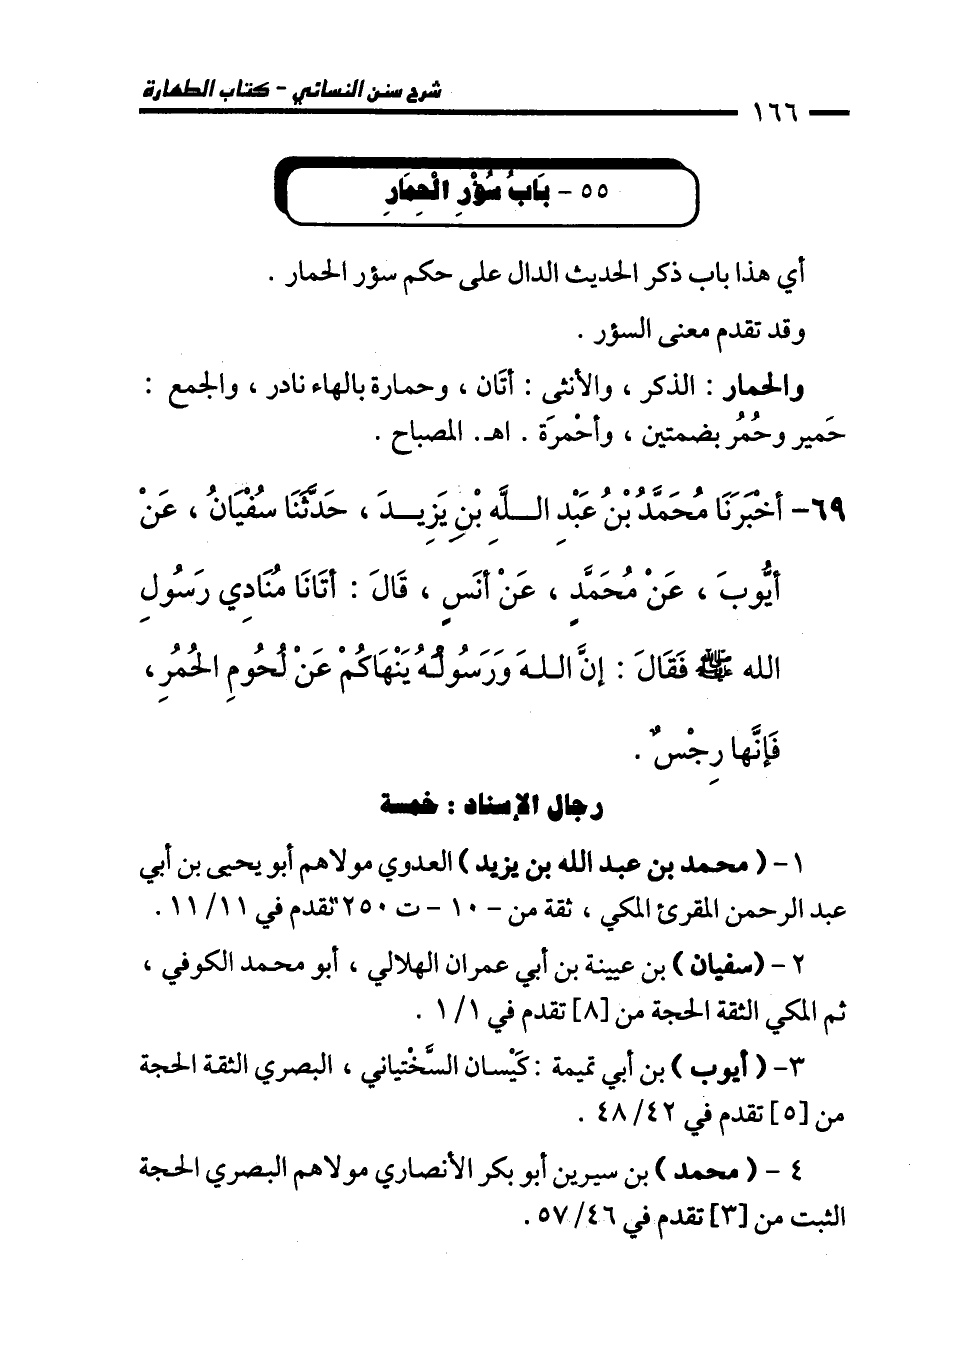 شرح سنن النسائي - كتاب الطهارة
١٦٦
٥٥ - بَابُ سُؤْرِ الْحِمَارِ
أي هذا باب ذكر الحديث الدال على حكم سؤر الحمار .
وقد تقدم معنى السؤر .
والحمار : الذكر ، والأنثى : أتَان ، وحمارة بالهاء نادر ، والجمع :
حَمير وحُمُر بضمتين ، وأحْمرَة . اهـ. المصباح .
٦٩- أخْبَرَنَا مُحَمَّدُ بْنُ عَبْدِ اللَّهِ بْنِ يَزِيدَ ، حَدَّثَنَا سُفْيَانُ ، عَنْ
أيُّوبَ ، عَنْ مُحَمَّدٍ ، عَنْ أنَسٍ ، قَالَ : أتَانَا مُنَادِي رَسُولِ
الله ﷺ فَقَالَ : إنَّ اللهَ وَرَسُولُهُ يَنْهَاكُمْ عَنْ لُحُومِ الحُمُرِ ،
فَإنَّها رِجْسٌ .
رجال الإسناد : خمسة
١- ( محمد بن عبد الله بن يزيد ) العدوي مولاهم أبو يحيى بن أبي
عبد الرحمن المقرئ المكي ، ثقة من - ١٠ - ت ٢٥٠ تقدم في ١١/١١ .
٢ - (سفيان ) بن عيينة بن أبي عمران الهلالي ، أبو محمد الكوفي ،
ثم المكي الثقة الحجة من [٨] تقدم في ١/١ .
٣- ( أيوب ) بن أبي تميمة : كَيْسان السَّخْتياني ، البصري الثقة الحجة
من [٥] تقدم في ٤٨/٤٢ .
٤ - ( محمد ) بن سيرين أبو بكر الأنصاري مولاهم البصري الحجة
الثبت من [٣] تقدم في ٥٧/٤٦ .